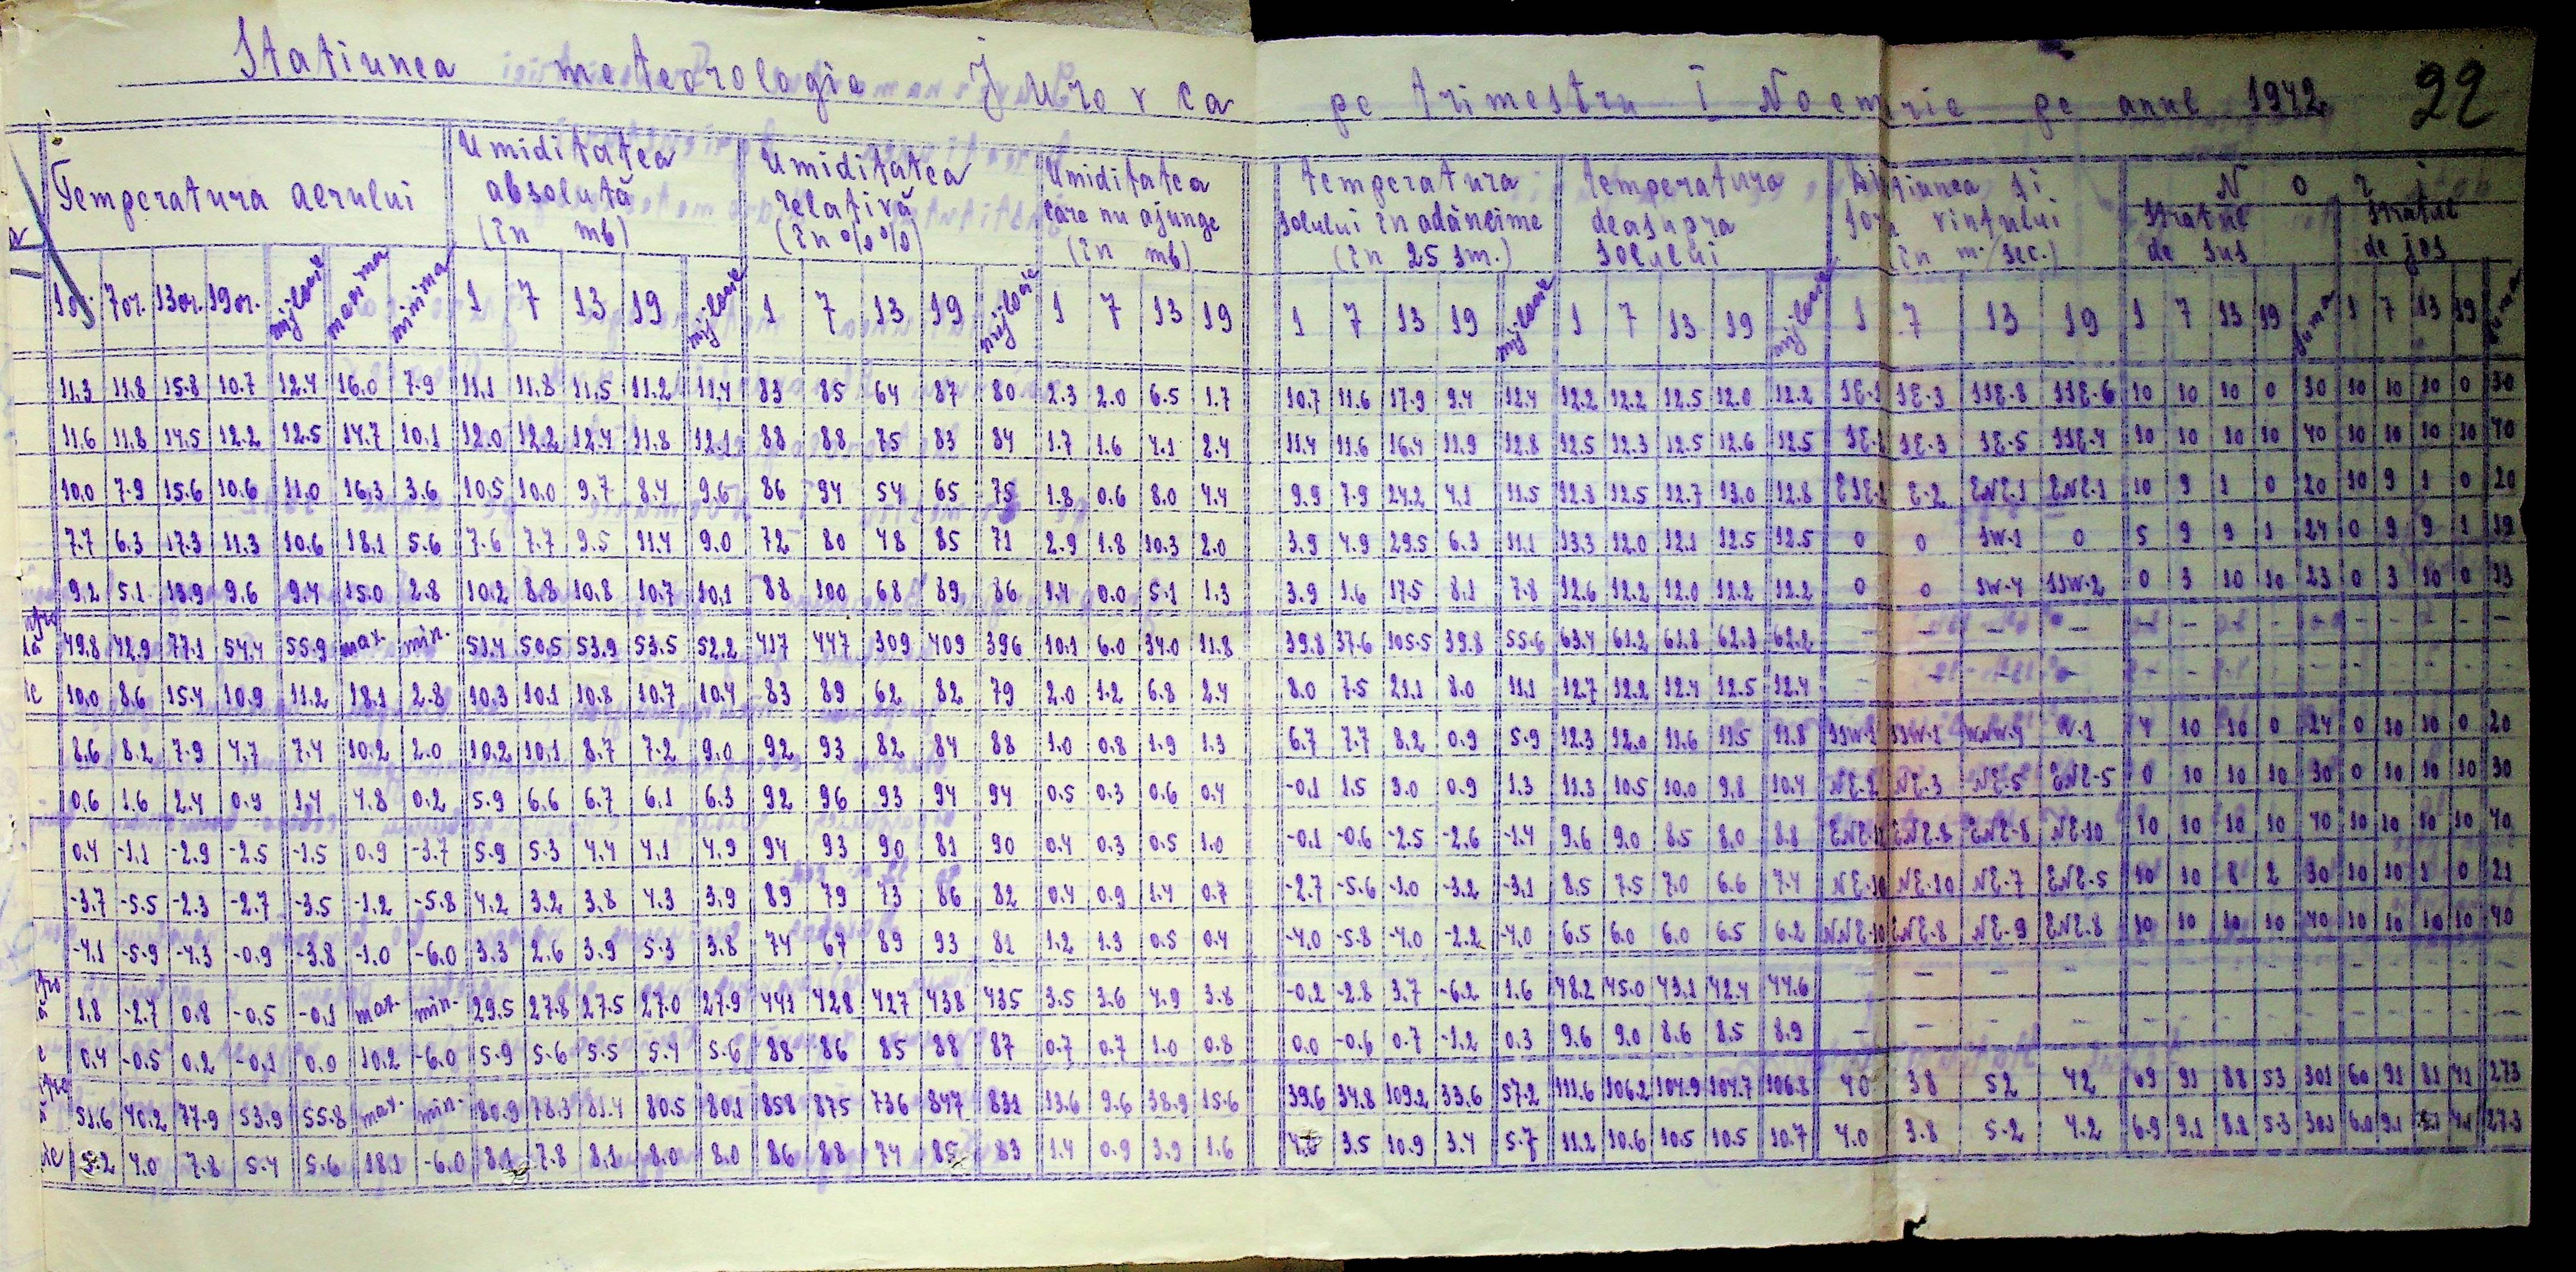 Statiunea meteorologie Jurovca pe trimestru I Noemrie pe anul 1942. 22
Temperatura aerului Umiditatea absolută (în mb) Umiditatea relativă (în %%) Umiditatea care nu ajunge (în mb) temperatura solului în adâncime (în 25 sm.) temperatura deasupra solului vintului (în m./sec.) N o r i stratul de sus stratul de jos
7or. 13or. 19or. mijlocie maxima minima 1 7 13 19 mijlocie 1 7 13 19 mijlocie 1 7 13 19 1 7 13 19 mijlocie 1 7 13 19 mijlocie 1 7 13 19 1 7 13 19 suma 1 7 13 19 suma
11.3 11.8 15.8 10.7 12.4 16.0 7.9 11.1 11.8 11.5 11.2 11.4 83 85 64 87 80 2.3 2.0 6.5 1.7 10.7 11.6 17.9 9.4 12.4 12.2 12.2 12.5 12.0 12.2 SE-1 SE-3 SSE-8 SSE-6 10 10 10 0 30 10 10 10 0 30
11.6 11.8 14.5 12.2 12.5 14.7 10.1 12.0 12.2 12.4 11.8 12.1 88 88 75 83 84 1.7 1.6 4.1 2.4 11.4 11.6 16.4 11.9 12.8 12.5 12.3 12.5 12.6 12.5 SE-3 SE-5 SSE-4 10 10 10 10 40 10 10 10 10 40
10.0 7.9 15.6 10.6 11.0 16.3 3.6 10.5 10.0 9.7 8.4 9.6 86 94 54 65 75 1.8 0.6 8.0 4.4 9.9 7.9 24.2 4.1 11.5 12.8 12.5 12.7 13.0 12.8 E-2 ENE-1 ENE-1 10 9 1 0 20 10 9 1 0 20
7.7 6.3 17.3 11.3 10.6 18.1 5.6 7.6 7.7 9.5 11.4 9.0 72 80 48 85 71 2.9 1.8 10.3 2.0 3.9 4.9 29.5 6.3 11.1 13.3 12.0 12.1 12.5 12.5 0 0 SW-1 0 5 9 9 1 24 0 9 9 1 19
9.2 5.1 13.9 9.6 9.4 15.0 2.8 10.2 8.8 10.8 10.7 10.1 88 100 68 89 86 1.4 0.0 5.1 1.3 3.9 1.6 17.5 8.1 7.8 12.6 12.2 12.0 12.2 12.2 0 0 SW-4 SSW-2 0 3 10 10 23 0 3 10 0 13
49.8 42.9 77.1 54.4 55.9 max. min. 51.4 50.5 53.9 53.5 52.2 417 447 309 409 396 10.1 6.0 34.0 11.8 39.8 37.6 105.5 39.8 55.6 63.4 61.2 61.8 62.3 62.2 – – – – – – – – – – – – – –
10.0 8.6 15.4 10.9 11.2 18.1 2.8 10.3 10.1 10.8 10.7 10.4 83 89 62 82 79 2.0 1.2 6.8 2.4 8.0 7.5 21.1 8.0 11.1 12.7 12.2 12.4 12.5 12.4 – – – – – – – – – – – – – –
8.6 8.2 7.9 4.7 7.4 10.2 2.0 10.2 10.1 8.7 7.2 9.0 92 93 82 84 88 1.0 0.8 1.9 1.3 6.7 7.7 8.2 0.9 5.9 12.3 12.0 11.6 11.5 11.8 SSW-1 SSW-1 WNW-4 4 10 10 0 24 0 10 10 0 20
0.6 1.6 2.4 0.4 1.4 4.8 0.2 5.9 6.6 6.7 6.1 6.3 92 96 93 94 94 0.5 0.3 0.6 0.4 -0.1 1.5 3.0 0.9 1.3 11.3 10.5 10.0 9.8 10.4 NE-2 NE-3 NE-5 ENE-5 0 10 10 10 30 0 10 10 10 30
0.4 -1.1 -2.9 -2.5 -1.5 0.9 -3.7 5.9 5.3 4.4 4.1 4.9 94 93 90 81 90 0.4 0.3 0.5 1.0 -0.1 -0.6 -2.5 -2.6 -1.4 9.6 9.0 8.5 8.0 8.8 ENE-8 ENE-8 NE-10 10 10 10 10 40 10 10 10 10 40
-3.7 -5.5 -2.3 -2.7 -3.5 -1.2 -5.8 4.2 3.2 3.8 4.3 3.9 89 79 73 86 82 0.4 0.9 1.4 0.7 -2.7 -5.6 -1.0 -3.2 -3.1 8.5 7.5 7.0 6.6 7.4 NE-10 NE-10 NE-7 ENE-5 10 10 8 2 30 10 10 1 0 21
-4.1 -5.9 -4.3 -0.9 -3.8 -1.0 -6.0 3.3 2.6 3.9 5.3 3.8 74 67 89 93 81 1.2 1.3 0.5 0.4 -4.0 -5.8 -4.0 -2.2 -4.0 6.5 6.0 6.0 6.5 6.2 NNE-10 ENE-8 NE-9 ENE-8 10 10 10 10 40 10 10 10 10 40
1.8 -2.7 0.8 -0.5 -0.1 max. min. 29.5 27.8 27.5 27.0 27.9 441 428 427 438 435 3.5 3.6 4.9 3.8 -0.2 -2.8 3.7 -6.2 1.6 48.2 45.0 43.1 42.4 44.6 – – – – – – – – – – – – – –
0.4 -0.5 0.2 -0.1 0.0 10.2 -6.0 5.9 5.6 5.5 5.4 5.6 88 86 85 88 87 0.7 0.7 1.0 0.8 0.0 -0.6 0.7 -1.2 0.3 9.6 9.0 8.6 8.5 8.9 – – – – – – – – – – – – – –
51.6 40.2 77.9 53.9 55.8 max. min. 80.9 78.3 81.4 80.5 80.1 858 875 736 847 831 13.6 9.6 38.9 15.6 39.6 34.8 109.2 33.6 57.2 111.6 106.2 104.9 104.7 106.8 40 38 52 42 69 91 88 53 301 60 91 81 41 273
5.2 4.0 7.8 5.4 5.6 18.1 -6.0 8.1 7.8 8.1 8.0 8.0 86 88 74 85 83 1.4 0.9 3.9 1.6 3.5 10.9 3.4 5.7 11.2 10.6 10.5 10.5 10.7 4.0 3.8 5.2 4.2 6.9 9.1 8.8 5.3 30.1 6.0 9.1 8.1 4.1 27.3